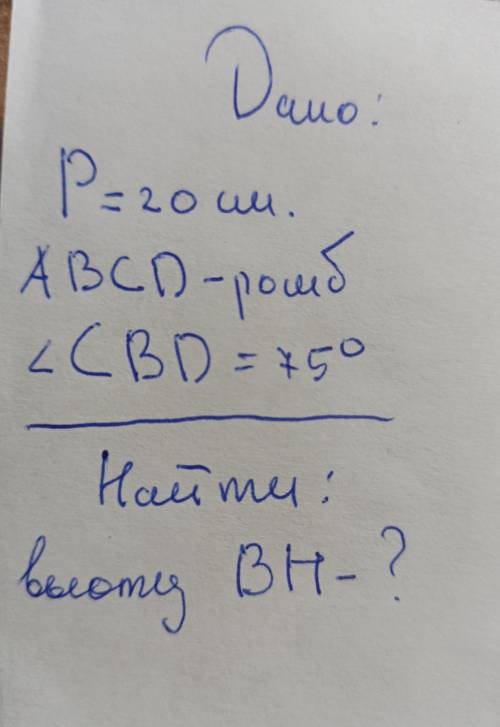 Дано:
P = 20 см.
ABCD - ромб
∠CBD = 75°
Найти:
высоту BH - ?